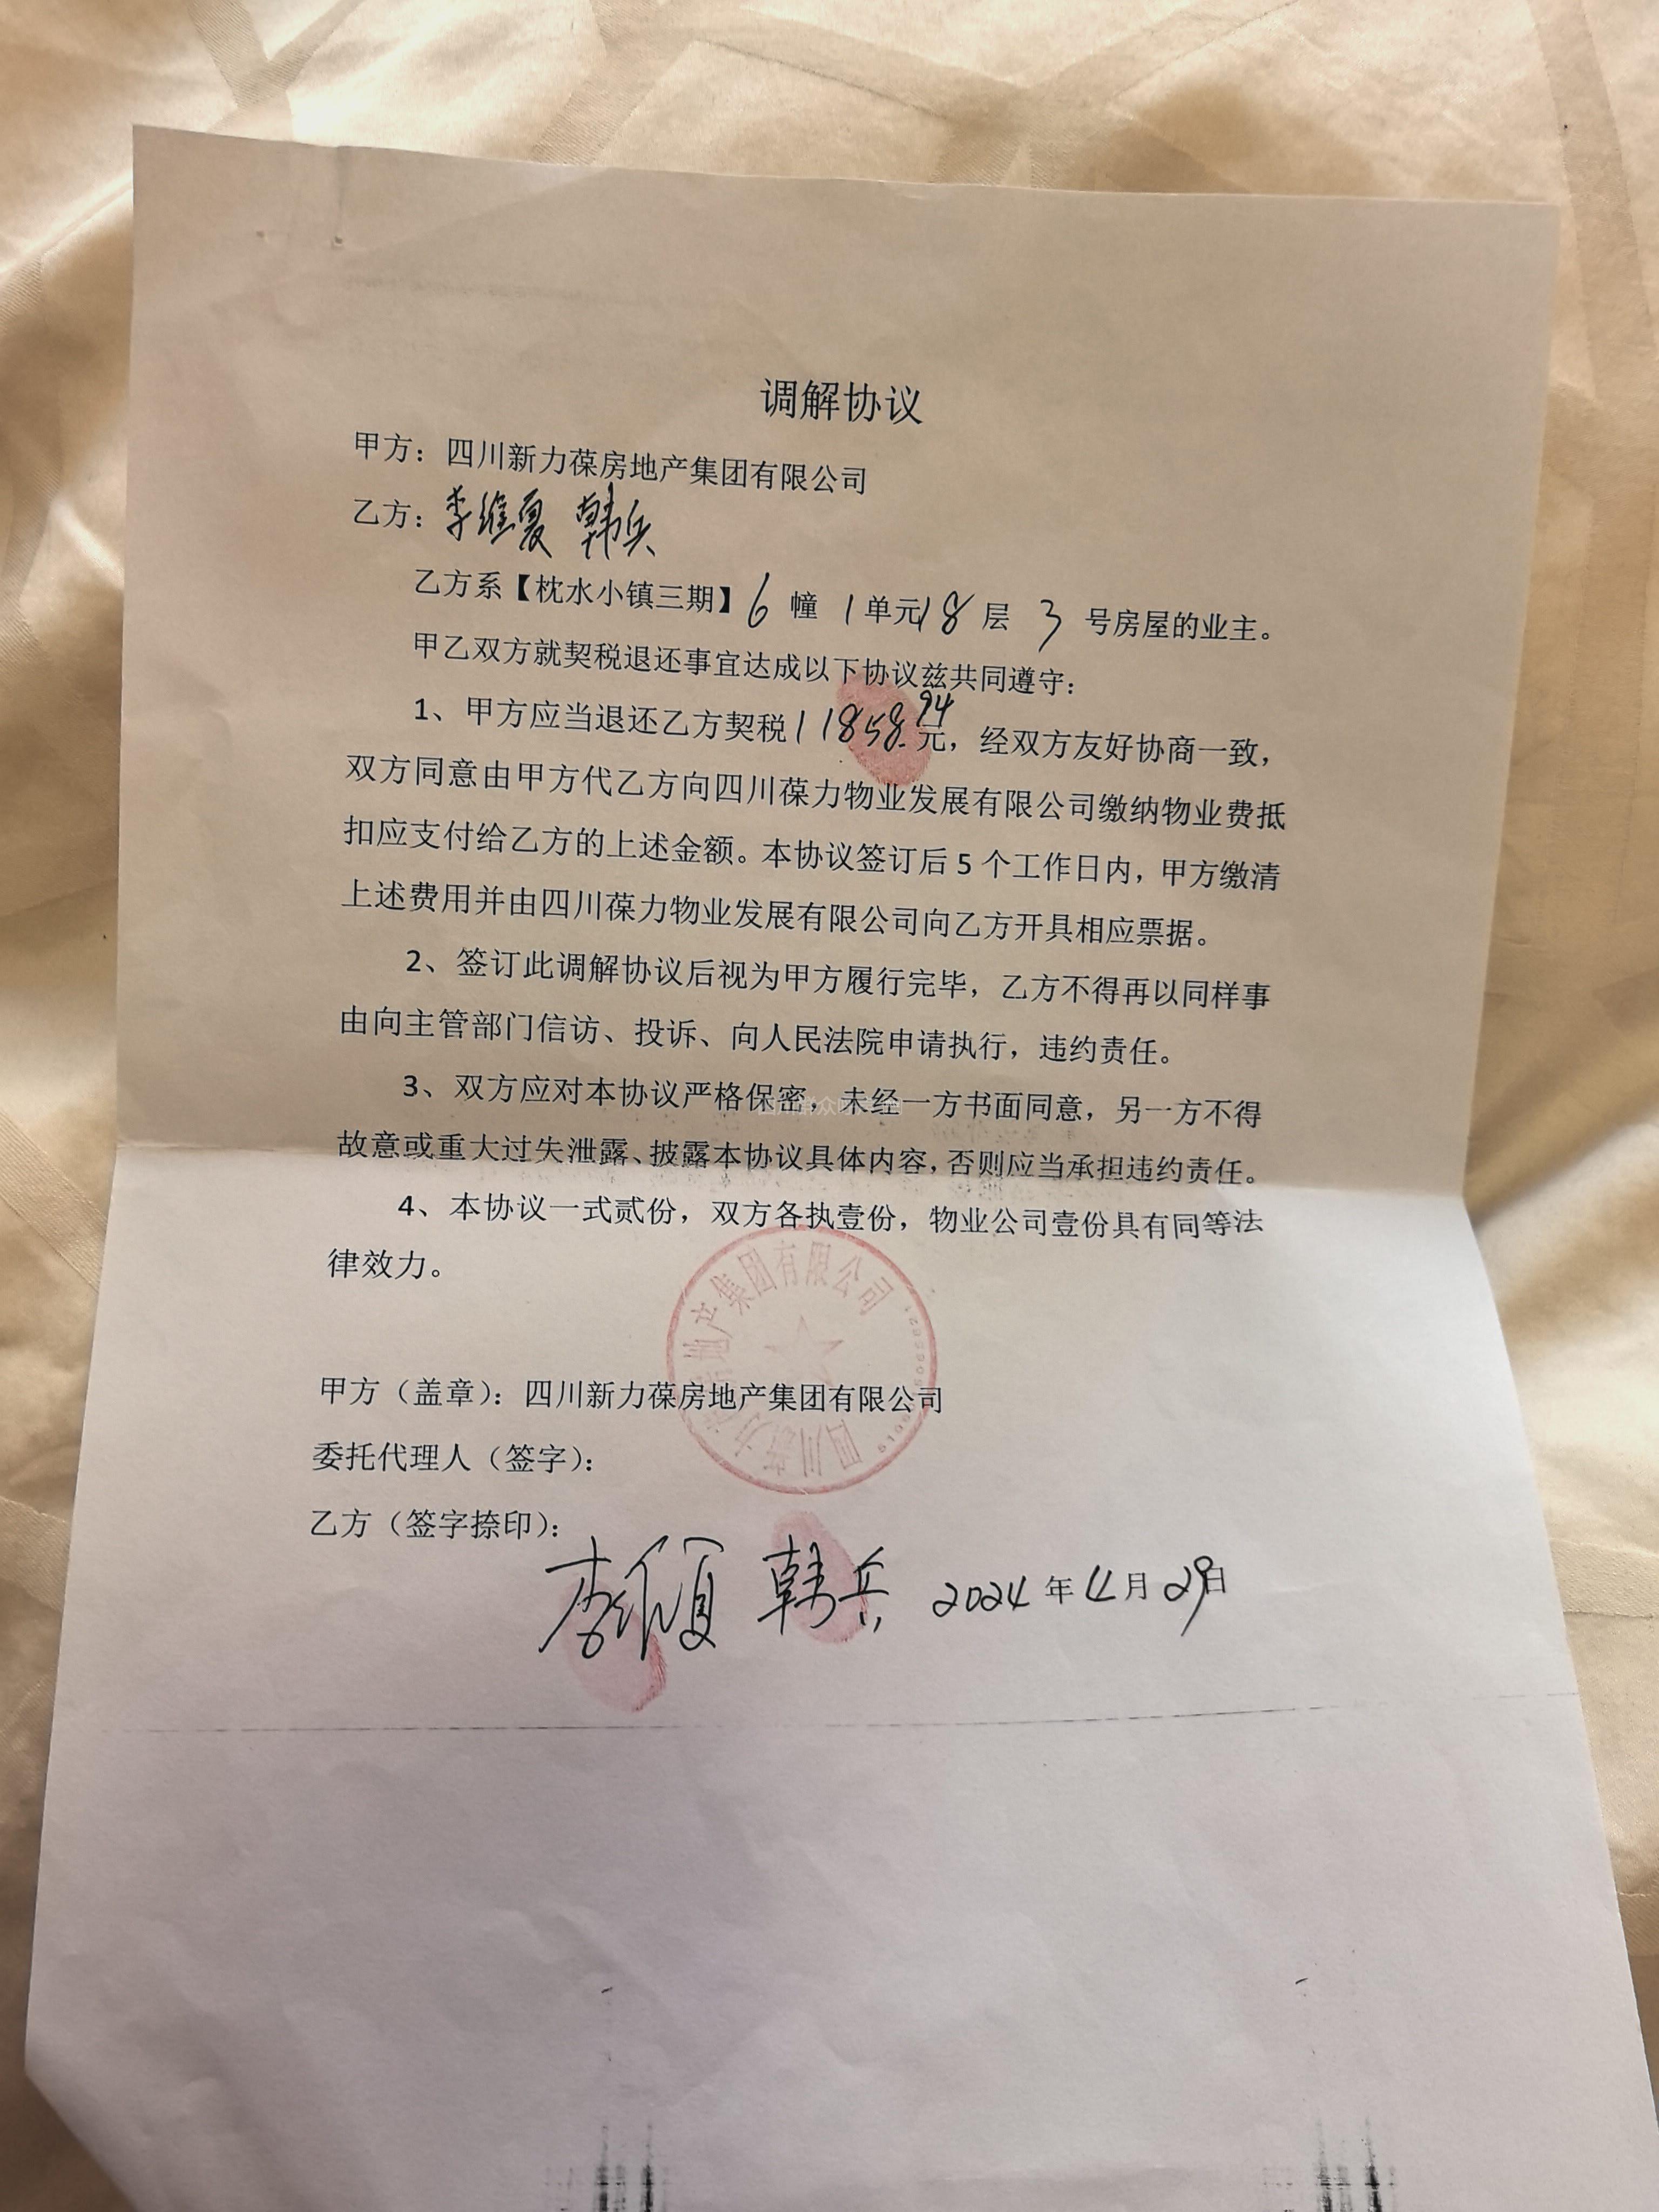 调解协议
甲方：四川新力葆房地产集团有限公司
乙方：李维夏 韩兵
乙方系【枕水小镇三期】6 幢 1 单元 18 层 3 号房屋的业主。
甲乙双方就契税退还事宜达成以下协议兹共同遵守：
1、甲方应当退还乙方契税11858.94元，经双方友好协商一致，
双方同意由甲方代乙方向四川葆力物业发展有限公司缴纳物业费抵
扣应支付给乙方的上述金额。本协议签订后 5 个工作日内，甲方缴清
上述费用并由四川葆力物业发展有限公司向乙方开具相应票据。
2、签订此调解协议后视为甲方履行完毕，乙方不得再以同样事
由向主管部门信访、投诉、向人民法院申请执行，违约责任。
3、双方应对本协议严格保密，未经一方书面同意，另一方不得
故意或重大过失泄露、披露本协议具体内容，否则应当承担违约责任。
4、本协议一式贰份，双方各执壹份，物业公司壹份具有同等法
律效力。
甲方（盖章）：四川新力葆房地产集团有限公司
委托代理人（签字）：
乙方（签字捺印）：
李维夏 韩兵 2024 年 4 月 29 日